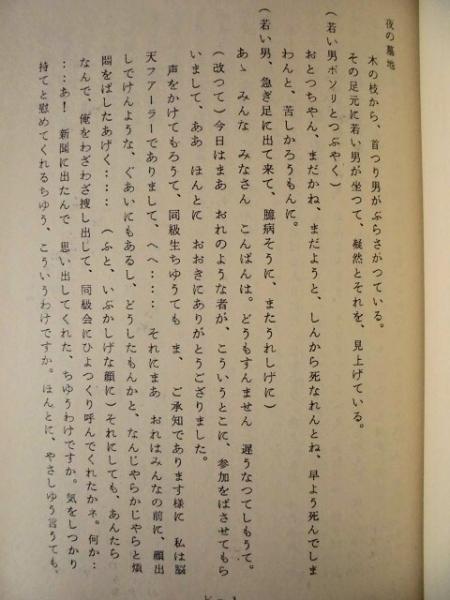 夜の墓地
木の枝から、首つり男がぶらさがつている。
その足元に若い男が坐つて、凝然とそれを、見上げている。
(若い男ボソリとつぶやく)
おとつちゃん、まだかね、まだようと、しんから死なれんとね、早よう死んでしま
わんと、苦しかろうもんに。
(若い男、急ぎ足に出て来て、臆病そうに、またうれしげに)
あゝ みんな みなさん こんばんは。どうもすんません 遅うなつてしもうて。
(改つて)今日はまあ おれのような者が、こういうとこに、参加をばさせてもら
いまして、ああ ほんとに おおきにありがとうござりました。
声をかけてもろうて、同級生ちゆうても ま、 ご承知であります様に 私は脳
天フアーラーでありまして、へへ‥‥ それにまあ おれはみんなの前に、顔出
しでけんような、ぐあいにもあるし、どうしたもんかと、なんじやらかじやらと煩
悶をばしたあげく‥‥ (ふと、いぶかしげな顔に)それにしても、あんたら
なんで、俺をわざわざ捜し出じて、同級会にひよつくり呼んでくれたかネ。何か‥
‥あ! 新聞に出たんで 思い出してくれた、ちゆうわけですか。気をしつかり
持てと慰めてくれるちゆう、こういうわけですか。ほんとに、やさしゆう言うても、